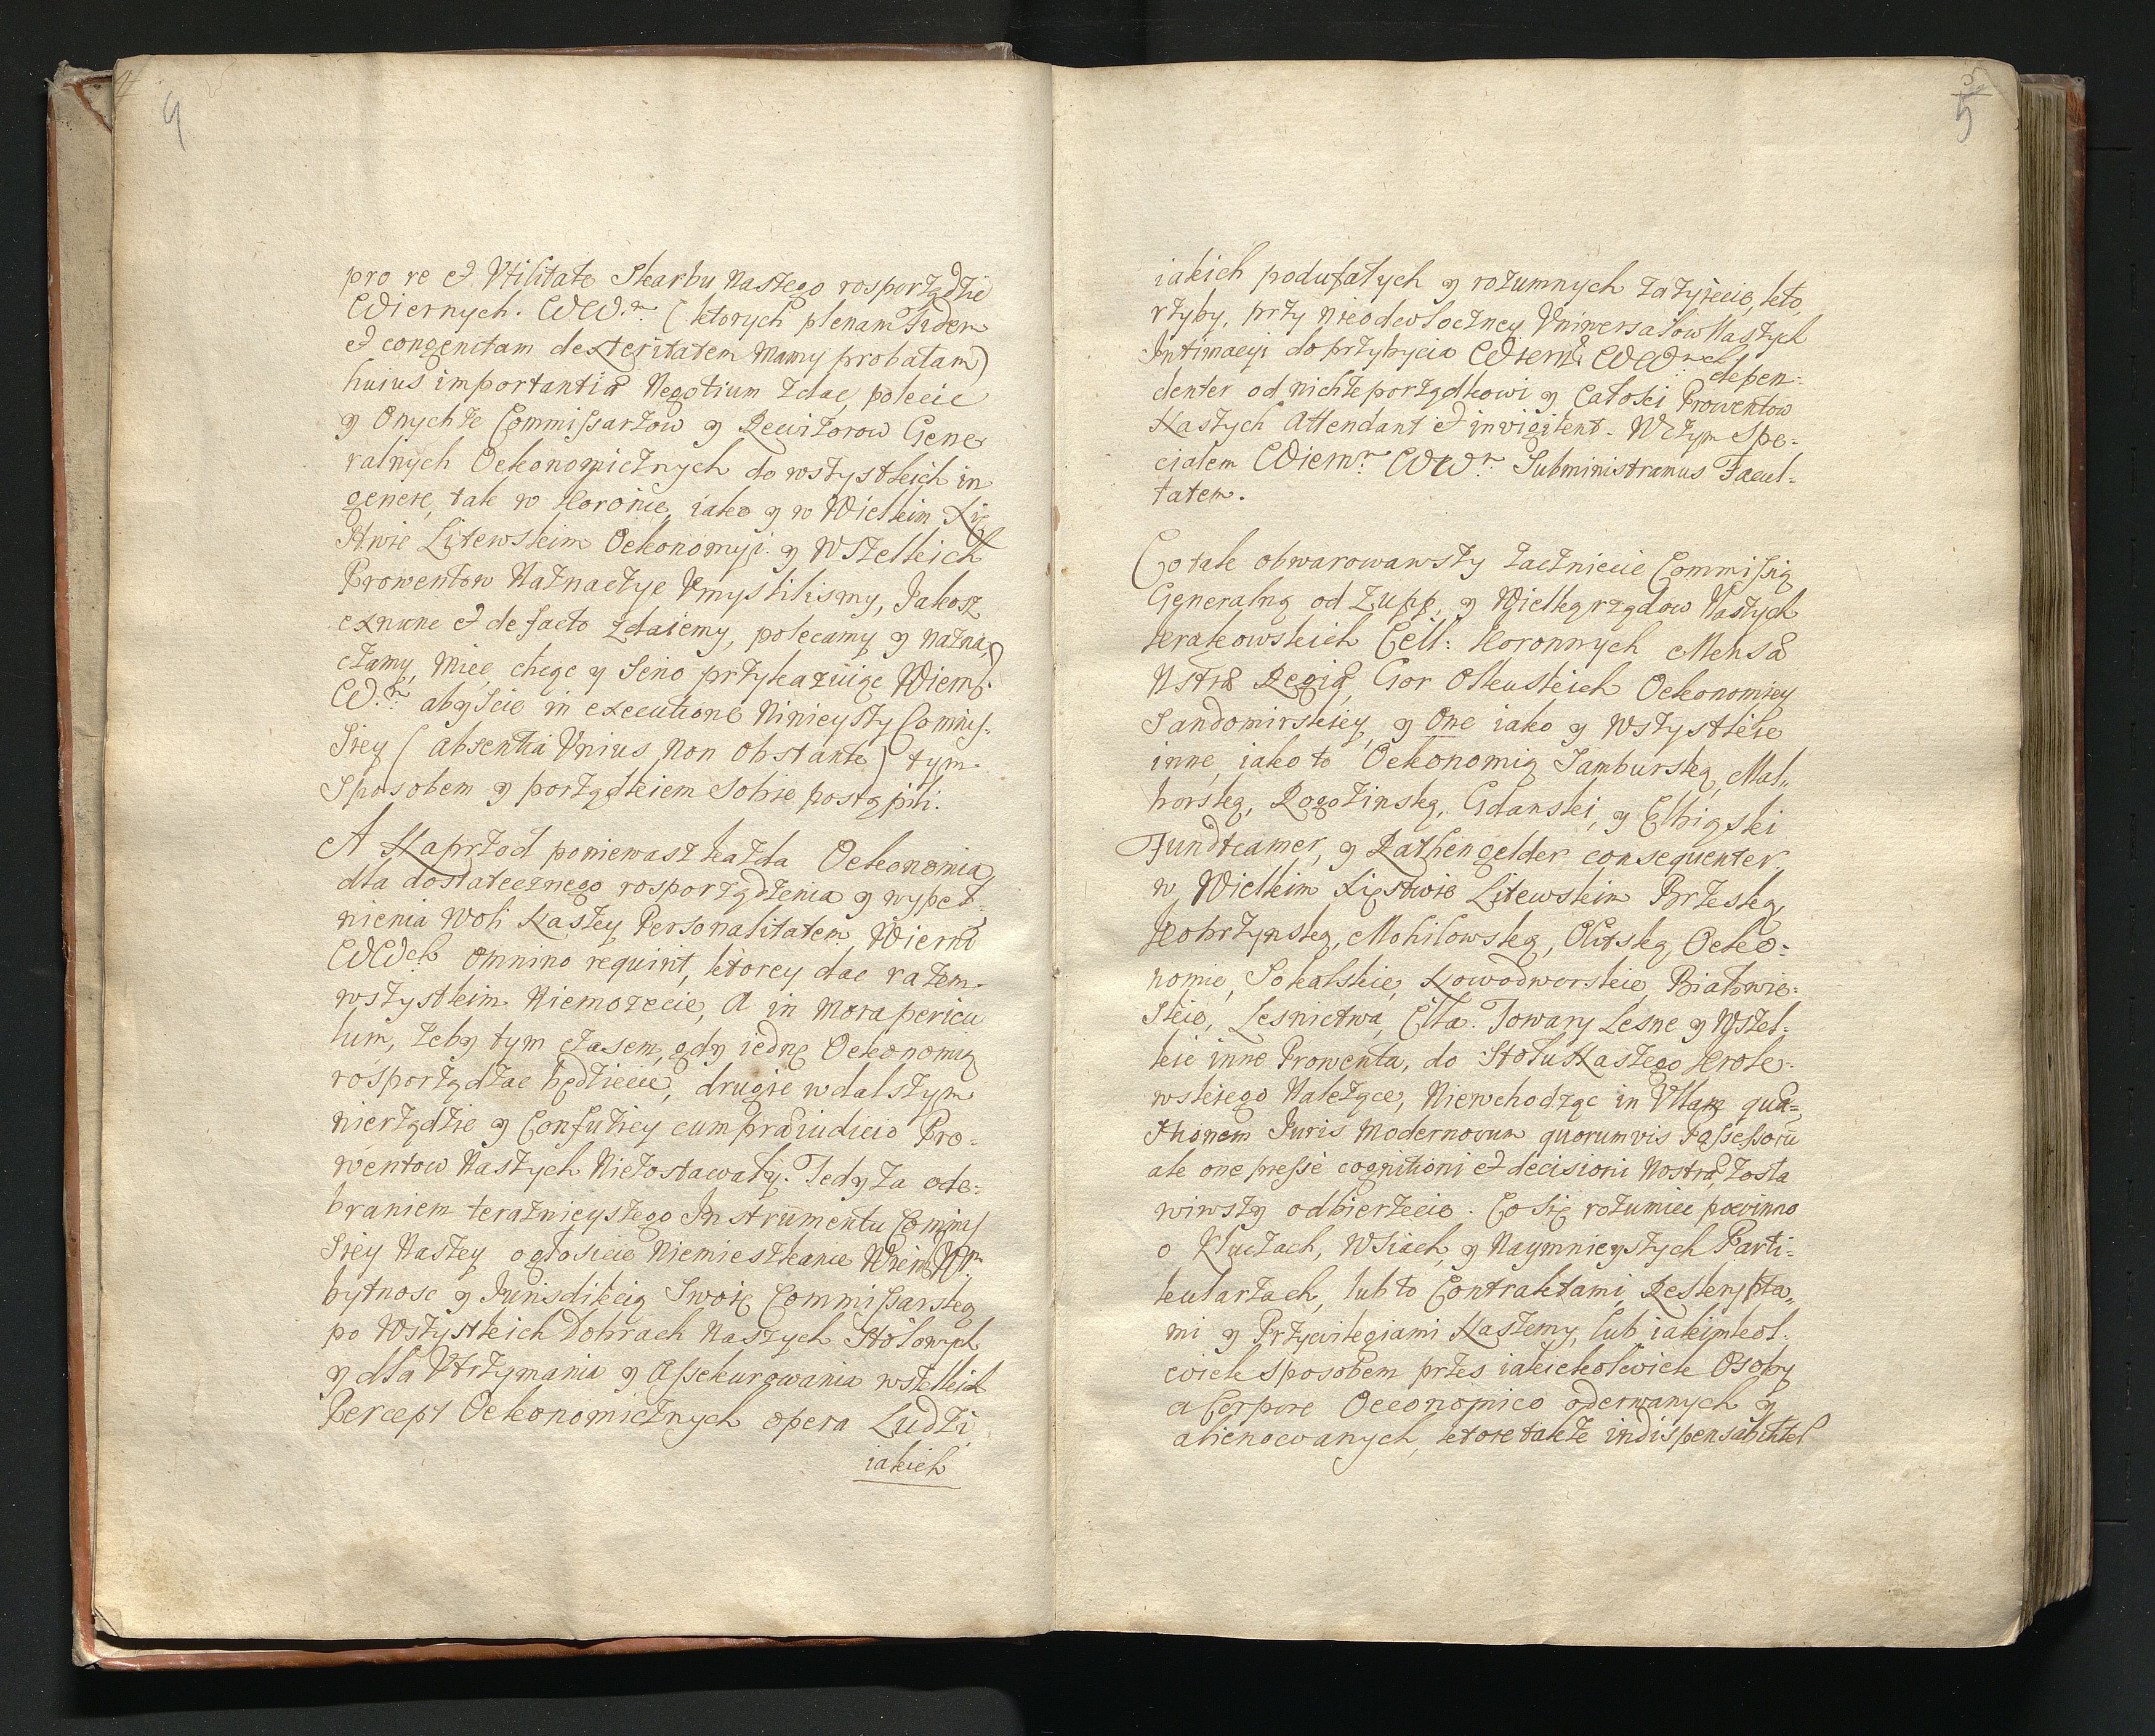 4
pro re et Vtilitate Skarbu Naszego rosporządzic
Wiernych. WW.m (ktorych plenam Fidem
et congenitam dexteritatem Mamy probatam)
huius importantiæ Negotium zdac, polecic
y Onychze Commissarzow y Rewizorow Gene
ralnych Oekonomicznych do wszystkich in
genere, tak w Koronie, iako y w Wielkim Xię
stwie Litewskim Oekonomyi y Wszelkich
Prowentow Naznaczyc Vmyslilismy, Jakosz
exnunc et de facto zdaiemy, polecamy y Nazna
czamy, Miec chcąc y Seno przykazuiąc Wiern.
W.m abyscie in executione Ninieyszy Commis-
siey (absentia Vnius Non Obstante) tym
Sposobem y porządkiem Sobie postąpili.
A Naprzod poniewasz kazda Oekonomia
dla dostatecznego rosporządzenia y wypeł
nienia Woli Naszey Personalitatem Wiern
WWch omnino requirit, ktorey dac razem
wszystkim Niemozecie, A in Mora pericu
lum, zeby tym czasem, gdy iednę Oekonomią
rosporządzac będziecie, drugie w dalszym
nierządzie y Confuziey cum præiudicio Pro-
wentow Naszych Niezostawały. Tedy za ode-
braniem teraznieyszego Instrumentu Commis
siey Naszey ogłosicie Niemieszkanie Wiern W.m
bytnosc y Jurisdikcią Swoię Commissarską
po Wszystkich Dobrach Naszych Stołowych
y dla Vtrzymania y Assekurowania wszelkich
Percept Oekonomicznych opera Ludzi
iakich
5
iakich podufałych y rozumnych zazyiecie, kto
rzyby, przy nieodwłoczney Vniwersałow Naszych
Intimacyi do przybycia Wiern WW.m depen-
denter od nichze porządkowi y Całosci Prowentow
Naszych Attendant et invigilent. W czym Spe-
cialem Wiern.m WW.m Subministramus Facul-
tatem.
Co tak obwarowawszy zaczniecie Commissią
Generalną od Zupp, y Wielkgrządow Naszych
Krakowskich Ceł: Koronnych Mensæ
Nstræ Regiæ, Gor Olkuskich Oekonomiey
Sandomirskiey, y One iako y Wszystkie
inne, iako to Oekonomią Samburską, Mal-
borską, Rogozinską, Gdanski, y Elbiąski
Fundtcamer, y Rathengelder consequenter
w Wielkim Xięstwie Litewskim Brzeską
Kobrzynską, Mohilowską, Olitską Oeko-
nomie, Sokalskie, Nowodworskie Białowie-
skie, Lesnictwa, Cła. Towary Lesne y Wszel-
kie inne Prowenta, do Stołu Naszego Krole-
wskiego Nalezące, Niewchodząc in Vllam quæ-
stionem Juris Modernorum quorumvis Possessorũ
ale one presse cognitioni et decisioni Nostræ zosta
wiwszy odbierzecie. Co się rozumiec powinno
o Kluczach, Wsiach, y Naymnieyszych Parti-
kularzach, lub to Contraktami, Reskrypta-
mi y Przywilegiami Naszemy, lub iakimkol-
wiek Sposobem przes iakiekolwiek Osoby
a Corpore Oeconomico oderwanych y
alienowanych, ktore takze indispensabiliter